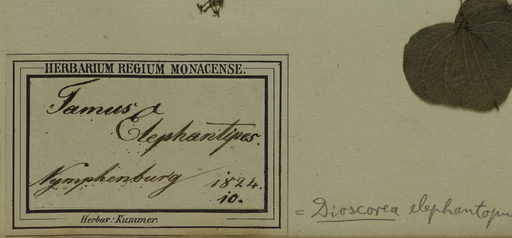 HERBARIUM REGIUM MONACENSE.
Tamus
Elephantipes.
Nymphenburg 1824.
10.
Herbar: Kummer.
= Dioscorea elephantopu